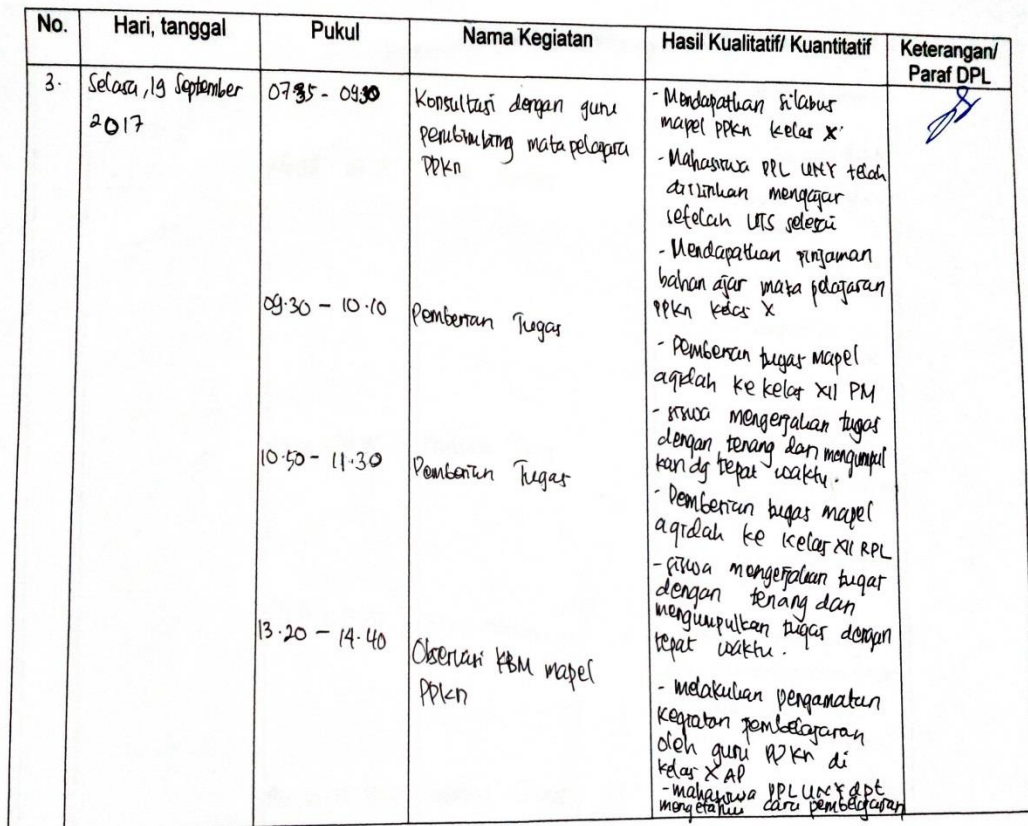 No.
Hari, tanggal
Pukul
Nama Kegiatan
Hasil Kualitatif/ Kuantitatif
Keterangan/
Paraf DPL
3.
Selasa, 19 September
2017
07.35 - 09.30
Konsultasi dengan guru
pembimbing mata pelajara
PPKn
- Mendapatkan silabus
mapel PPKn kelas X
- Mahasiswa PPL UNY telah
diizinkan mengajar
setelah UTS selesai
- Mendapatkan pinjaman
bahan ajar mata pelajaran
PPKn kelas X
09.30 - 10.10
Pemberian Tugas
- Pemberian tugas mapel
aqidah ke kelas XII PM
- siswa mengerjakan tugas
dengan tenang dan mengumpul
kan dg tepat waktu.
10.50 - 11.30
Pemberian Tugas
- Pemberian tugas mapel
aqidah ke kelas XII RPL
- siswa mengerjakan tugas
dengan tenang dan
mengumpulkan tugas dengan
tepat waktu.
13.20 - 14.40
Observasi KBM mapel
PPKn
- melakukan pengamatan
kegiatan pembelajaran
oleh guru PPKn di
kelas X AP
- mahasiswa PPL UNY dpt
mengetahui cara pembelajaran